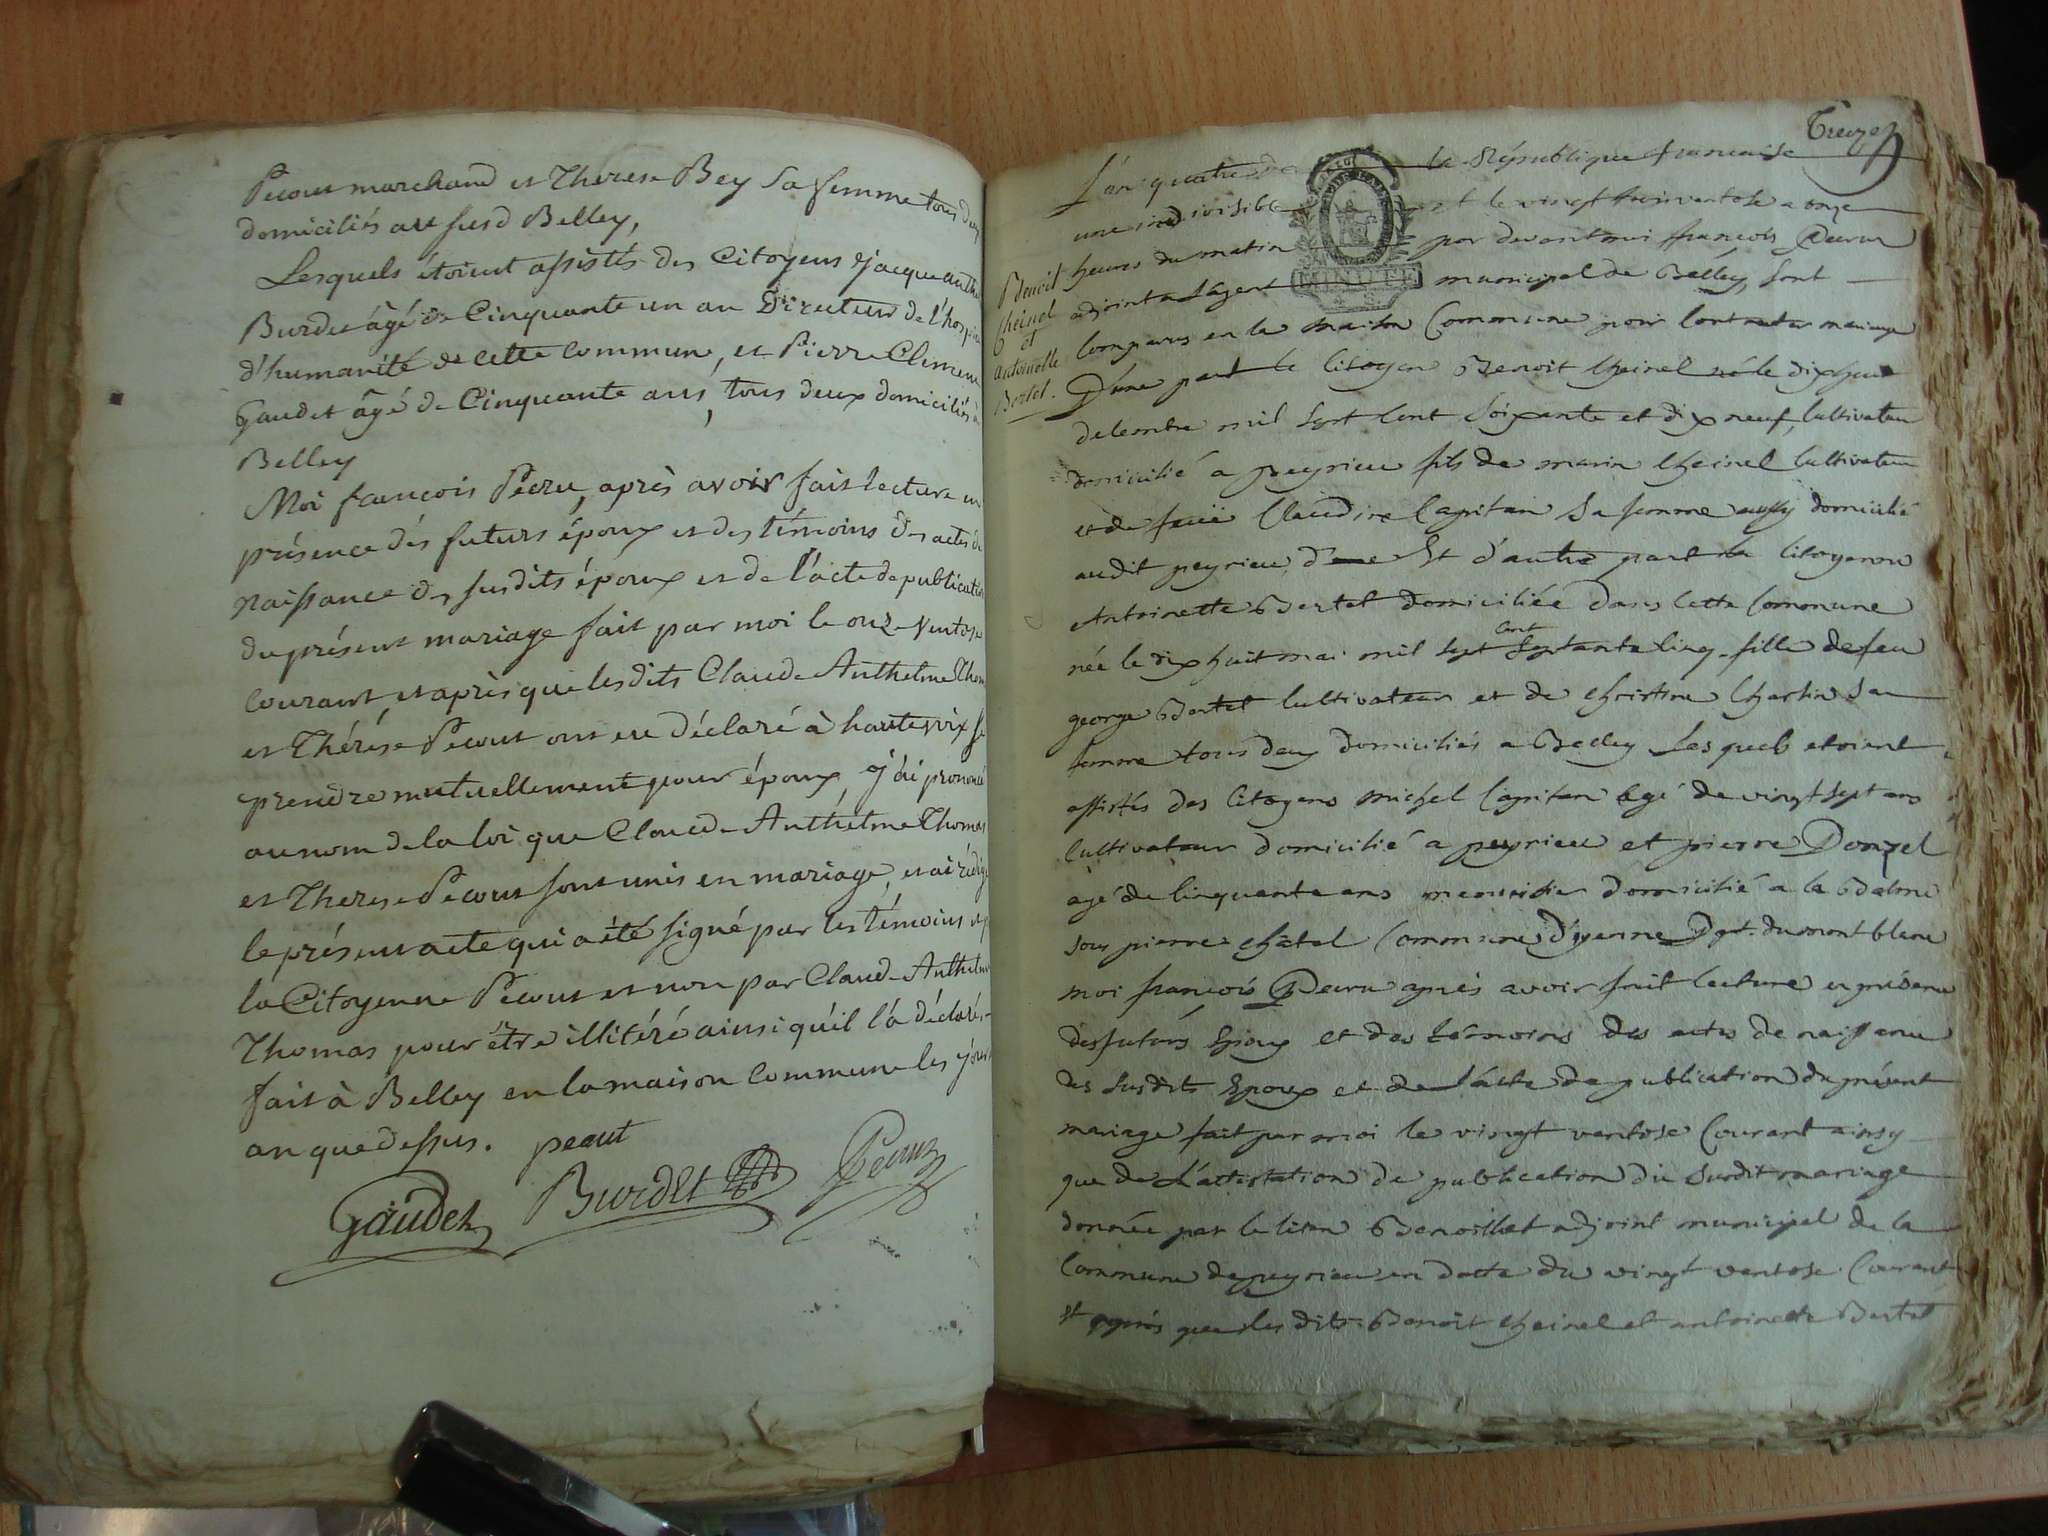 Pecout marchand et Therese Bey sa femme tous deux
domiciliés au susd Belley,
Lesquels étoient assistés des Citoyens Jacque anthe
Burdet âgé de Cinquante un an Directeur de l'hospice
d'humanité de cette commune, et Pierre Clement
Gaudet âgé de Cinquante ans, tous deux domiciliés à
Belley
Moi françois Pecru, après avoir fait lecture en
présence dés futurs époux et des témoins des actes de
naissance des susdits époux et de l'acte de publication
du présent mariage fait par moi le onze Ventose
courant, et après que lesdits Claude Anthelme Thomas
et Thérése Pecout ont eu déclaré à haute voix se
prendre mutuellement pour époux, j'ai prononcé
au nom de la loi que Claude Anthelme Thomas
et Therese Pecout sont unis en mariage, et ai rédigé
le présent acte qui a été signé par les témoins et
la Citoyenne Pecout et non par Claude Anthelme
Thomas pour être illitéré ainsi qu'il l'a déclaré.
fait à Belley en la maison commune les jour
an que dessus. pecout
Gaudet Burdet Pecru
Treize
L'an quatre de la République francaise
une indivisible et le vingt trois ventose a onze
heures du matin par devant moi françois Pecru
adjoint a l'agent municipal de Belley, sont
MINUTE
Benoit
Cheinel
et
antoinette
Bertet.
Comparus en la maison Commune pour Contracter mariage
D'une part le Citoyen Benoit Cheinel né le dix huit
decembre mil sept Cent soixante et dix neuf, Cultivateur
domicilié a peyrieu fils de marin Cheinel Cultivateur
et de feuë Claudine Capitan sa femme aussy domicilié
audit peyrieu, Et d'autre part la Citoyenne
Antoinette Bertet domiciliée dans Cette Commune
née le dix huit mai mil sept Cent septante Cinq, fille de feu
george Bertet Cultivateur et de christine Charlin sa
femme tous deux domiciliés a Belley Lesquels etoient
assistés des Citoyens michel Capitan agé de vingt sept ans
Cultivateur domicilié a peyrieu et pierre Donzel
agé de Cinquante ans domicilié a la Balme
sous pierre chatel Commune d'yenne Dpt. du mont blanc
moi françois Pecru après avoir fait lecture en présence
des futurs Epoux et des témoins des actes de naissance
des susdits Epoux et de l'acte de publication du présent
mariage fait par moi le vingt ventose Courant ainsy
que de L'attestation de publication du susdit mariage
donnée par le Citen Benoillet adjoint municipal de la
Commune de peyrieu en datte du vingt ventose Courant
et après que les dits Benoit Cheinel et antoinette Bertet